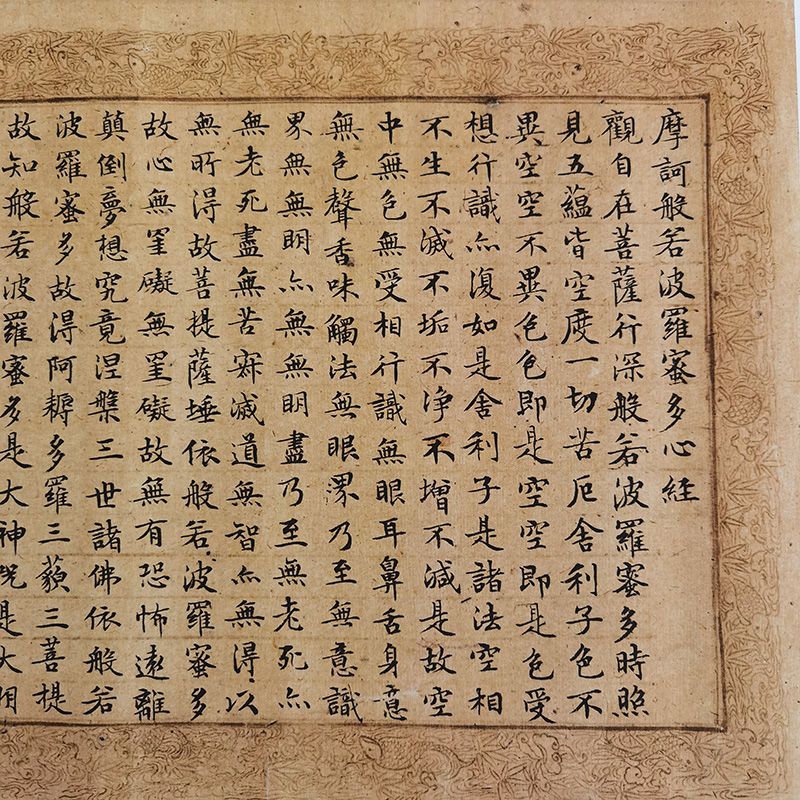 摩訶般若波羅蜜多心経
觀自在菩薩行深般若波羅蜜多時照
見五蘊皆空度一切苦厄舍利子色不
異空空不異色色即是空空即是色受
想行識亦復如是舍利子是諸法空相
不生不滅不垢不淨不增不減是故空
中無色無受相行識無眼耳鼻舌身意
無色聲香味觸法無眼界乃至無意識
界無無明亦無無明盡乃至無老死亦
無老死盡無苦寂滅道無智亦無得以
無所得故菩提薩埵依般若波羅蜜多
故心無罣礙無罣礙故無有恐怖遠離
顛倒夢想究竟涅槃三世諸佛依般若
波羅蜜多故得阿耨多羅三藐三菩提
故知般若波羅蜜多是大神咒是大明